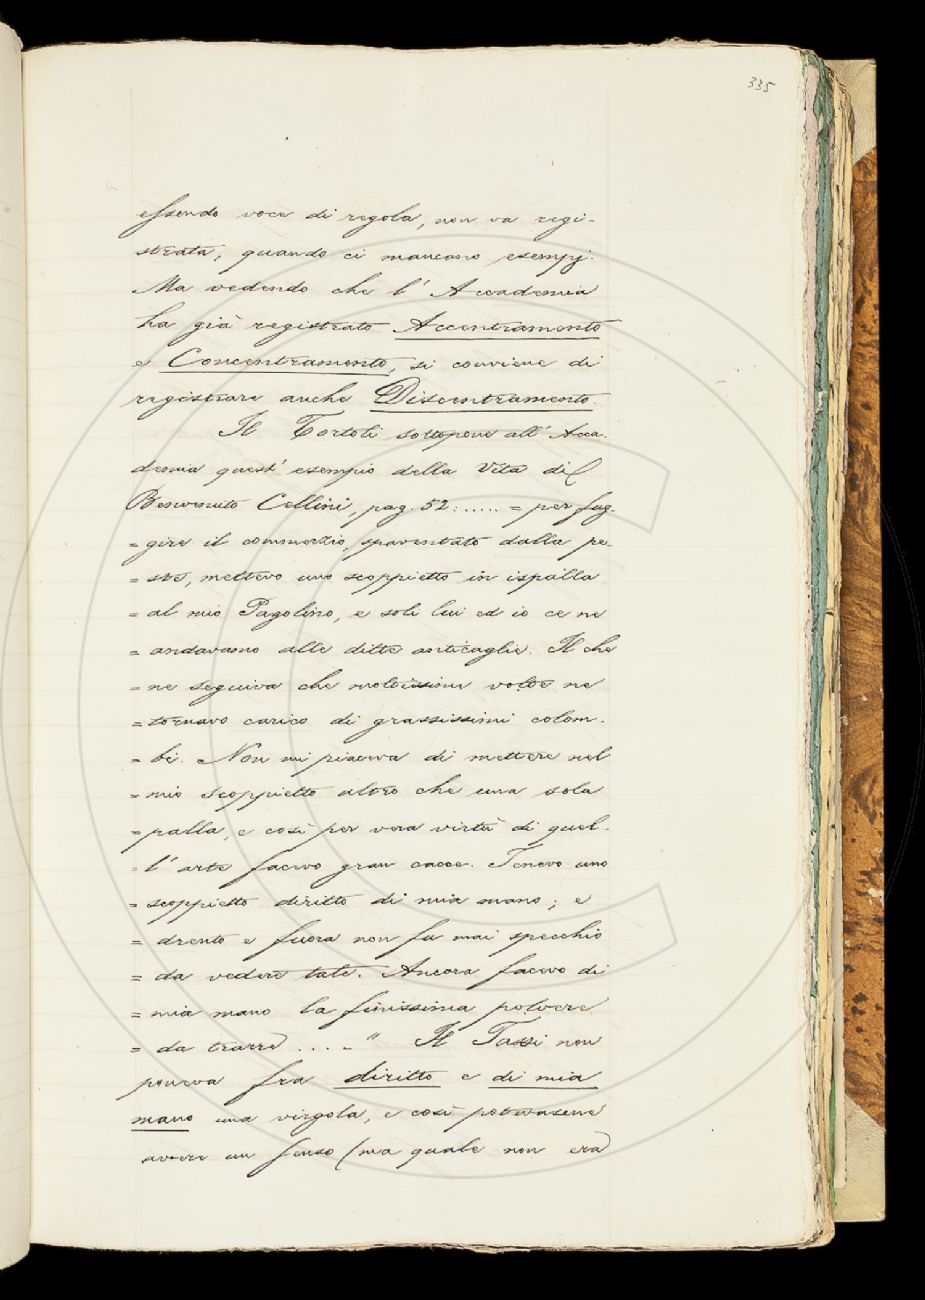 335
essendo voce di regola, non va regi-
strata, quando ci mancano esempj.
Ma vedendo che l' Accademia
ha già registrato Accentramento
e Concentramento, si conviene di
registrare anche Discentramento.
Il Tortoli sottopone all' Acca-
demia quest' esempio della Vita di
Benvenuto Cellini, pag. 52: ..... = per fug-
= gire il commerzio, spaventato dalla pe-
= ste, mettevo uno scoppietto in ispalla
= al mio Pagolino, e soli lui ed io ce ne
= andavamo alle ditte anticaglie. Il che
= ne seguiva che moltissime volte ne
= tornavo carico di grassissimi colom-
= bi. Non mi piaceva di mettere nel
= mio scoppietto altro che una sola
= palla, e così per vera virtù di quel-
= l' arte facevo gran cacce. Tenevo uno
= scoppietto diritto di mia mano; e
= drento e fuora non fu mai specchio
= da vedere tale. Ancora facevo di
= mia mano la finissima polvere
= da trarre .... " Il Tassi non
poneva fra diritto e di mia
mano una virgola, e così potevasene
avere un senso (ma quale non era